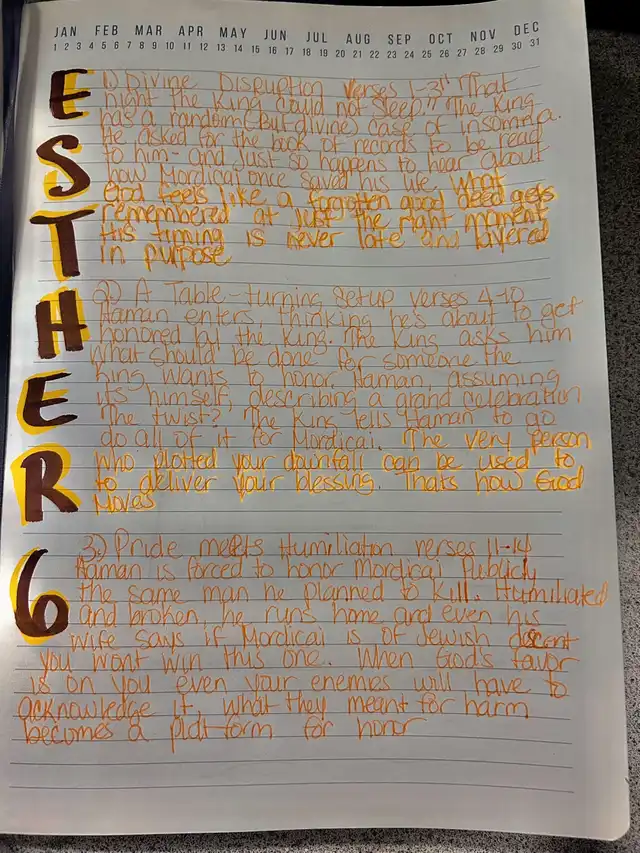 JAN FEB MAR APR MAY JUN JUL AUG SEP OCT NOV DEC
1 2 3 4 5 6 7 8 9 10 11 12 13 14 15 16 17 18 19 20 21 22 23 24 25 26 27 28 29 30 31
ESTHER 6
1) Divine Disruption verses 1-3 "That
night the King could not sleep" The King
has a random (but divine) case of insomnia.
He asked for the book of records to be read
to him - and just so happens to hear about
how Mordicai once saved his life. What
God feels like a forgotten good deed gets
remembered at just the right moment
His timing is never late and layered
in purpose
2) A Table-turning setup verses 4-10
Haman enters, thinking he's about to get
honored by the King. The King asks him
what should be done for someone the
king wants to honor, Haman, assuming
its himself, describing a grand celebration
The twist? The King tells Haman to go
do all of it for Mordicai. The very person
who plotted your downfall can be used to
to deliver your blessing. Thats how God
Moves
3.) Pride meets Humiliation verses 11-14
Haman is forced to honor Mordicai Publicly
the same man he planned to Kill. Humiliated
and broken, he runs home and even his
wife says if Mordicai is of Jewish descent
you wont win this one. When God's favor
is on you even your enemies will have to
acknowledge it, what they meant for harm
becomes a platform for honor